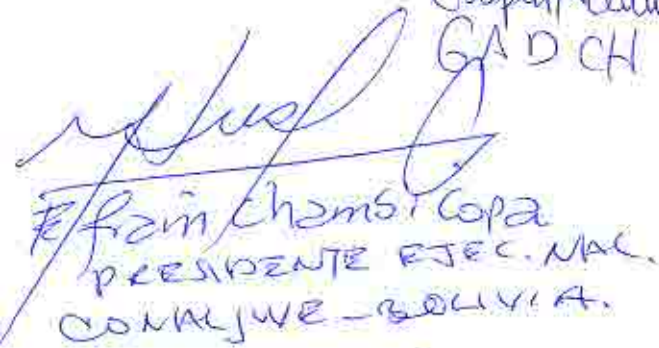 GAD CH
Efrain Chambi Copa
PRESIDENTE EJEC. NAC.
CONALJUVE - BOLIVIA.